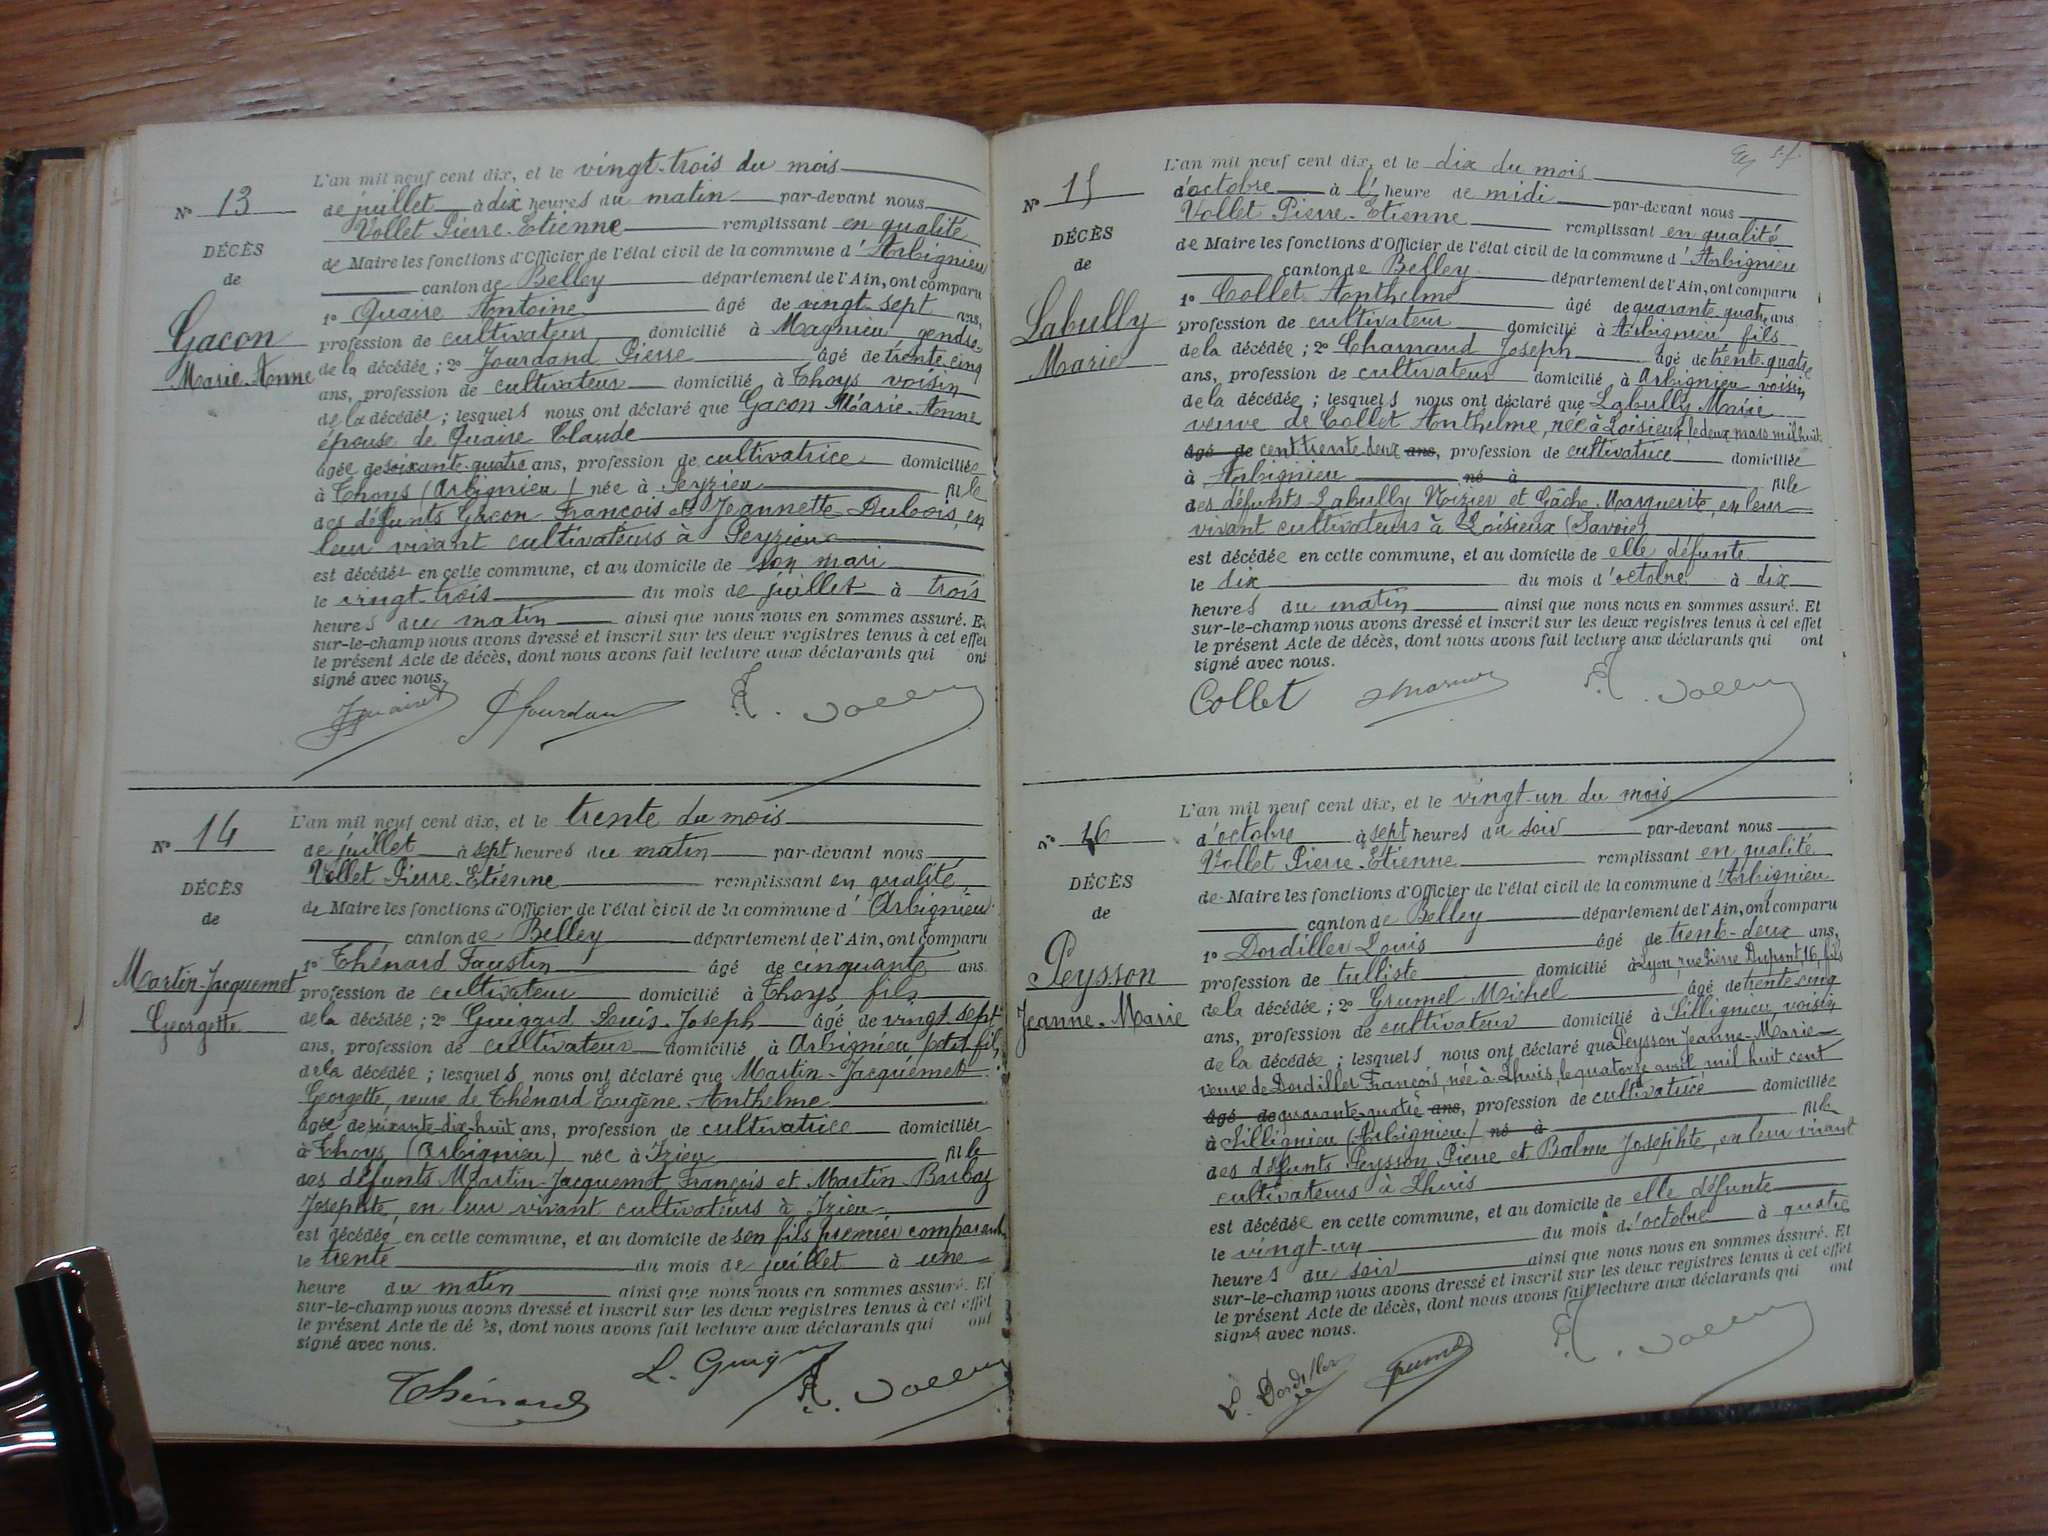 L'an mil neuf cent dix, et le vingt-trois du mois
Nº 13
de juillet à dix heures du matin par-devant nous
Vollet Pierre-Etienne remplissant en qualité
DÉCÈS
de Maire les fonctions d'Officier de l'état civil de la commune d'Arbignieu
de
canton de Belley département de l'Ain, ont comparu
1º Quaire Antoine âgé de vingt sept ans,
Gacon
profession de cultivateur domicilié à Magnieu gendre
Marie-Anne
de la décédée ; 2º Jourdand Pierre âgé de trente cinq
ans, profession de cultivateur domicilié à Thoys voisin
de la décédée ; lesquels nous ont déclaré que Gacon Marie-Anne
épouse de Quaire Claude
âgée de soixante-quatre ans, profession de cultivatrice domiciliée
à Thoys (Arbignieu) née à Peyzieu fille
des défunts Gacon François et Jeannette Dubois, en
leur vivant cultivateurs à Peyzieu
est décédée en cette commune, et au domicile de son mari
le vingt-trois du mois de juillet à trois
heures du matin ainsi que nous nous en sommes assuré. Et
sur-le-champ nous avons dressé et inscrit sur les deux registres tenus à cet effet
le présent Acte de décès, dont nous avons fait lecture aux déclarants qui ont
signé avec nous.
L'an mil neuf cent dix, et le trente du mois
Nº 14
de juillet à sept heures du matin par-devant nous
Vollet Pierre-Etienne remplissant en qualité
DÉCÈS
de Maire les fonctions d'Officier de l'état civil de la commune d'Arbignieu
de
canton de Belley département de l'Ain, ont comparu
1º Thénard Faustin âgé de cinquante ans
Martin-Jacquemet
profession de cultivateur domicilié à Thoys fils
Georgette
de la décédée ; 2º Guigard Louis-Joseph âgé de vingt-sept
ans, profession de cultivateur domicilié à Arbignieu, petit fils
de la décédée ; lesquels nous ont déclaré que Martin-Jacquemet
Georgette, veuve de Thénard Eugène-Anthelme
âgée de soixante-dix-huit ans, profession de cultivatrice domiciliée
à Thoys (Arbignieu) née à Izieu fille
des défunts Martin-Jacquemet François et Martin-Barbaz
Josephte, en leur vivant cultivateurs à Izieu
est décédée en cette commune, et au domicile de son fils premier comparant
le trente du mois de juillet à une
heure du matin ainsi que nous nous en sommes assuré. Et
sur-le-champ nous avons dressé et inscrit sur les deux registres tenus à cet effet
le présent Acte de décès, dont nous avons fait lecture aux déclarants qui ont
signé avec nous.
Thénard
L'an mil neuf cent dix, et le dix du mois
Nº 15
d'octobre à l' heure de midi par-devant nous
Vollet Pierre-Etienne remplissant en qualité
DÉCÈS
de Maire les fonctions d'Officier de l'état civil de la commune d'Arbignieu
de
canton de Belley département de l'Ain, ont comparu
1º Collet Anthelme âgé de quarante quatre ans
Labully
profession de cultivateur domicilié à Arbignieu, fils
Marie
de la décédée ; 2º Charnaud Joseph âgé de trente-quatre
ans, profession de cultivateur domicilié à Arbignieu voisin
de la décédée ; lesquels nous ont déclaré que Labully Marie
veuve de Collet Anthelme, née à Loisieux, le deux mars mil huit
âgé de cent trente deux ans, profession de cultivatrice domiciliée
à Arbignieu né à fille
des défunts Labully Nizier et Gâche Marguerite, en leur
vivant cultivateurs à Loisieux (Savoie)
est décédée en cette commune, et au domicile de elle défunte
le dix du mois d'octobre à dix
heures du matin ainsi que nous nous en sommes assuré. Et
sur-le-champ nous avons dressé et inscrit sur les deux registres tenus à cet effet
le présent Acte de décès, dont nous avons fait lecture aux déclarants qui ont
signé avec nous.
Collet
L'an mil neuf cent dix, et le vingt-un du mois
Nº 16
d'octobre à sept heures du soir par-devant nous
Vollet Pierre-Etienne remplissant en qualité
DÉCÈS
de Maire les fonctions d'Officier de l'état civil de la commune d'Arbignieu
de
canton de Belley département de l'Ain, ont comparu
1º Dordiller Louis âgé de trente-deux ans,
Peysson
profession de tulliste domicilié à Lyon, rue Pierre Dupont, 16, fils
Jeanne-Marie
de la décédée ; 2º Grumel Michel âgé de trente cinq
ans, profession de cultivateur domicilié à Sillignieu, voisin
de la décédée ; lesquels nous ont déclaré que Peysson Jeanne-Marie
veuve de Dordiller François, née à Lhuis, le quatorze avril mil huit cent
âgé de quarante-quatre ans, profession de cultivatrice domiciliée
à Sillignieu (Arbignieu) né à fille
des défunts Peysson Pierre et Balme Josephte, en leur vivant
cultivateurs à Lhuis
est décédée en cette commune, et au domicile de elle défunte
le vingt-un du mois d'octobre à quatre
heures du soir ainsi que nous nous en sommes assuré. Et
sur-le-champ nous avons dressé et inscrit sur les deux registres tenus à cet effet
le présent Acte de décès, dont nous avons fait lecture aux déclarants qui ont
signé avec nous.
L. Dordiller